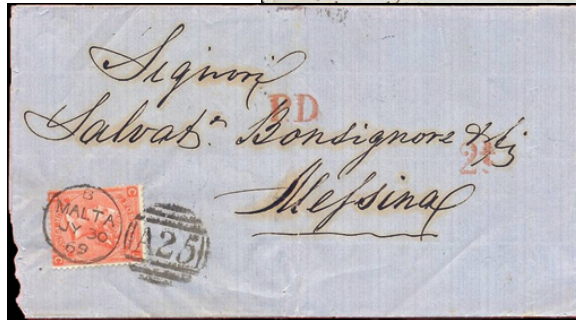 Signori
PD
Salvat.e Bonsignore & fi
Messina
B
MALTA
JY 30
69
A25